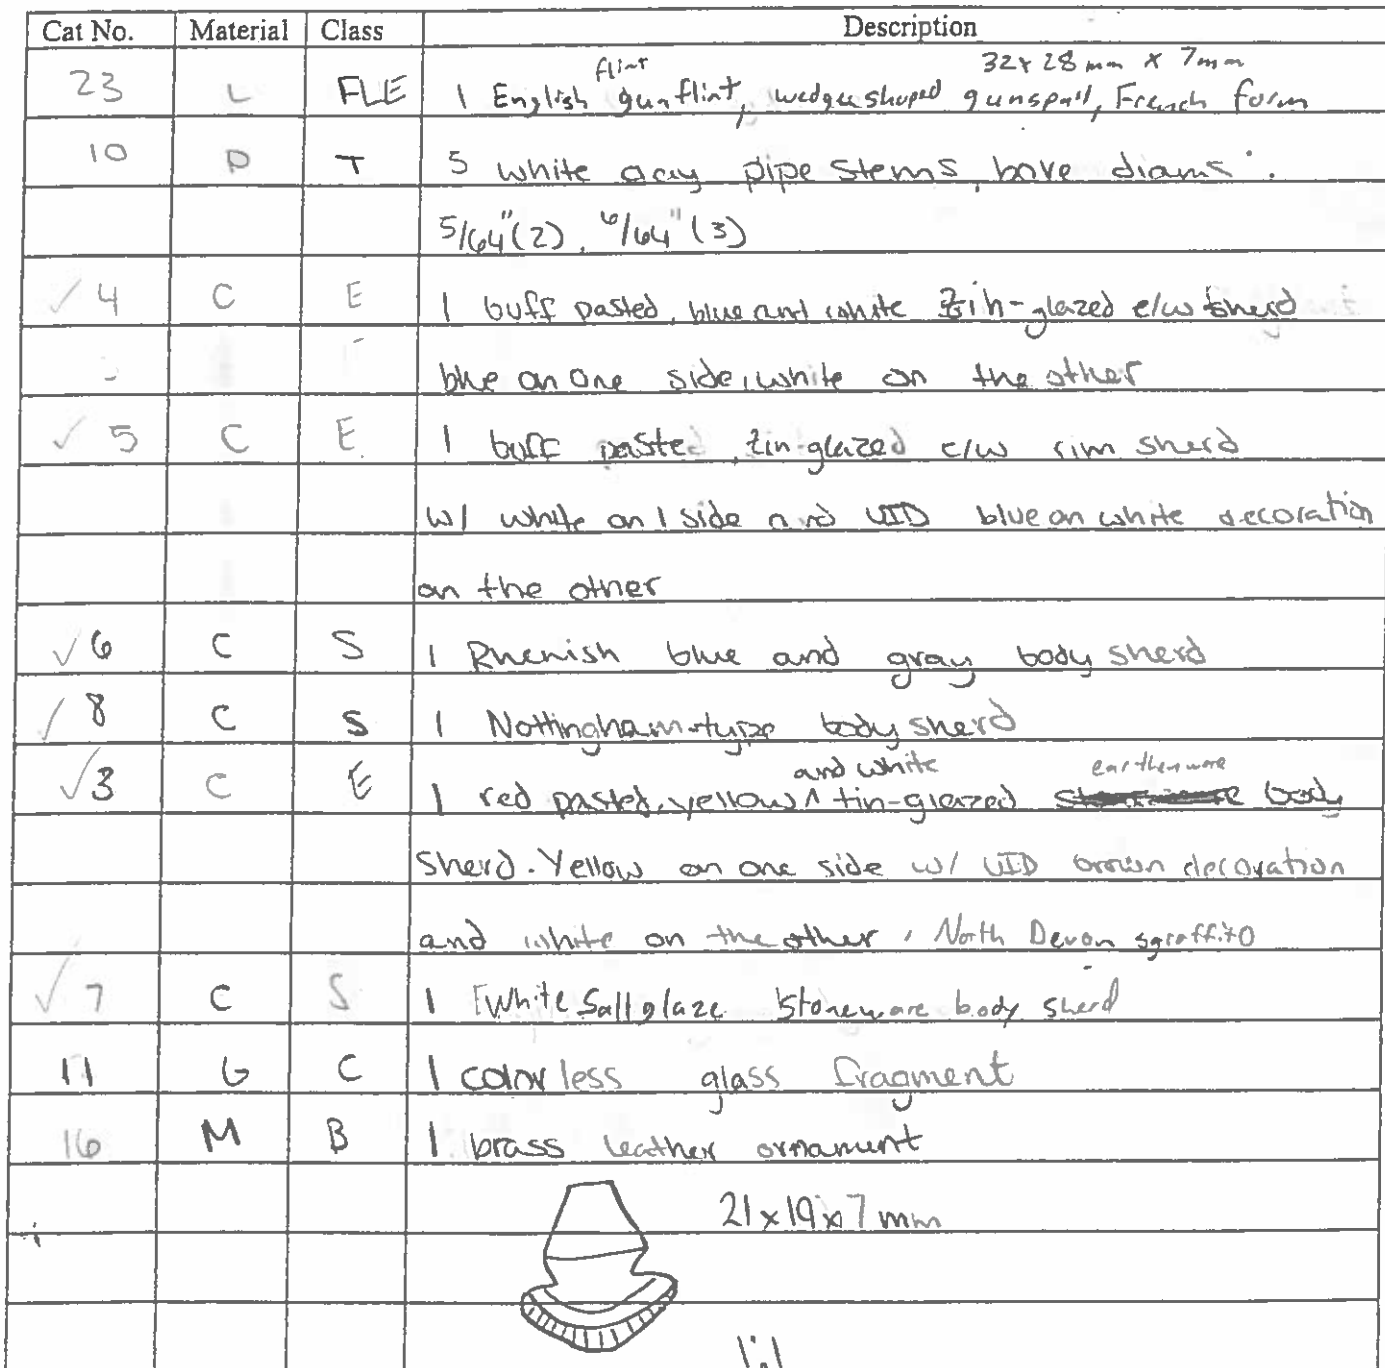 Cat No. Material Class Description
flint 32 x 28 mm x 7mm
23 L FLE 1 English gunflint, wedge shaped gunspall, French form
10 P T 5 white clay pipe stems, bore diams:
5/64"(2), 6/64"(3)
✓ 4 C E 1 buff pasted, blue and white tin-glazed e/w sherd
blue on one side, white on the other
✓ 5 C E 1 buff pasted, tin-glazed e/w rim sherd
w/ white on 1 side and UID blue on white decoration
on the other
✓ 6 C S 1 Rhenish blue and gray body sherd
✓ 8 C S 1 Nottingham-type body sherd
and white earthenware
✓ 3 C E 1 red pasted, yellow ^ tin-glazed body
sherd. Yellow on one side w/ UID brown decoration
and white on the other, North Devon sgraffito
✓ 7 C S 1 White Saltglaze Stoneware body sherd
11 G C 1 colorless glass fragment
16 M B 1 brass leather ornament
21 x 19 x 7 mm
1:1